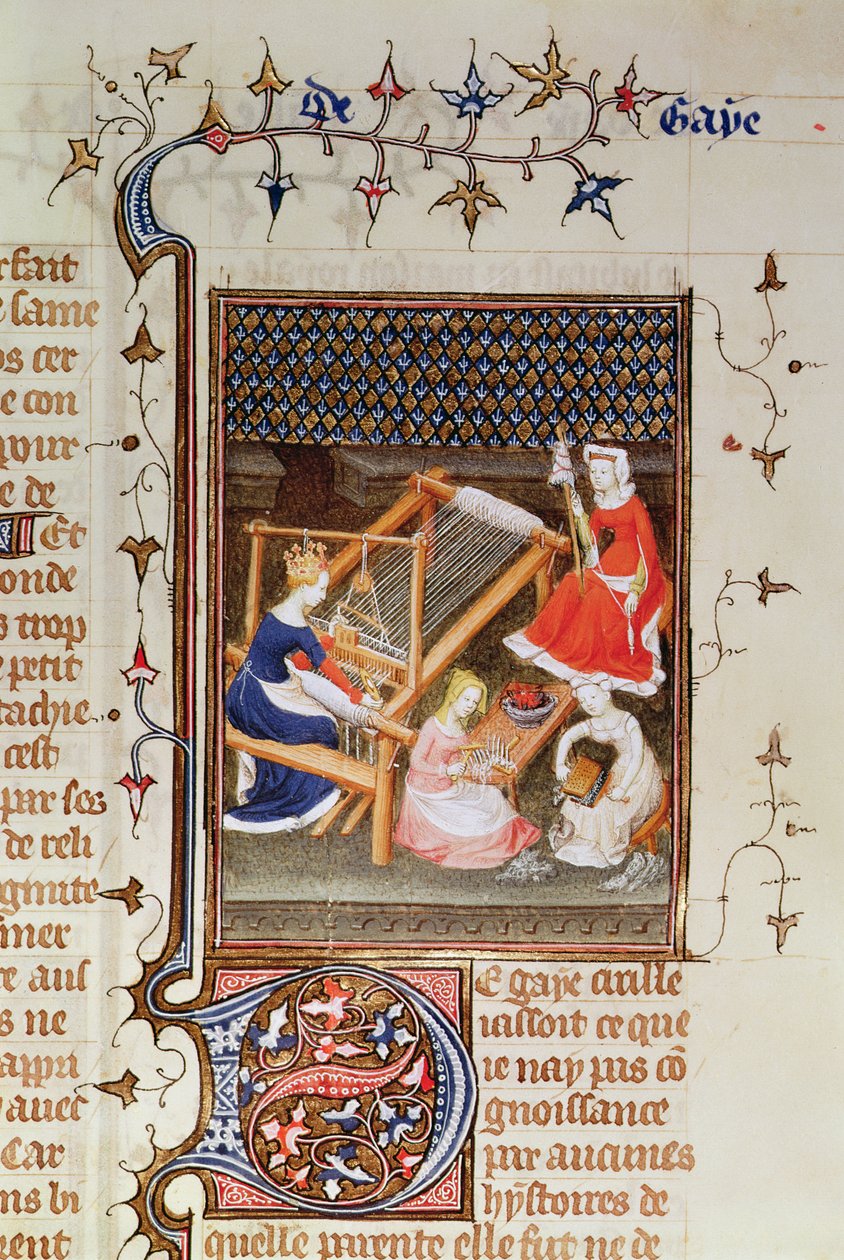 de Gaÿe
rfait
same
os cer
e con
pour
e de
Et
onde
s trop
petit
tachie
cest
par ses
de reli
mer
aus
s ne
appri
auec
Car
ns bi
uent
De gaÿe cirille
iassoit ce que
ie nay pas cõ
gnoissance
par aucunes
hÿstoires de
quelle parente elle fut ne de